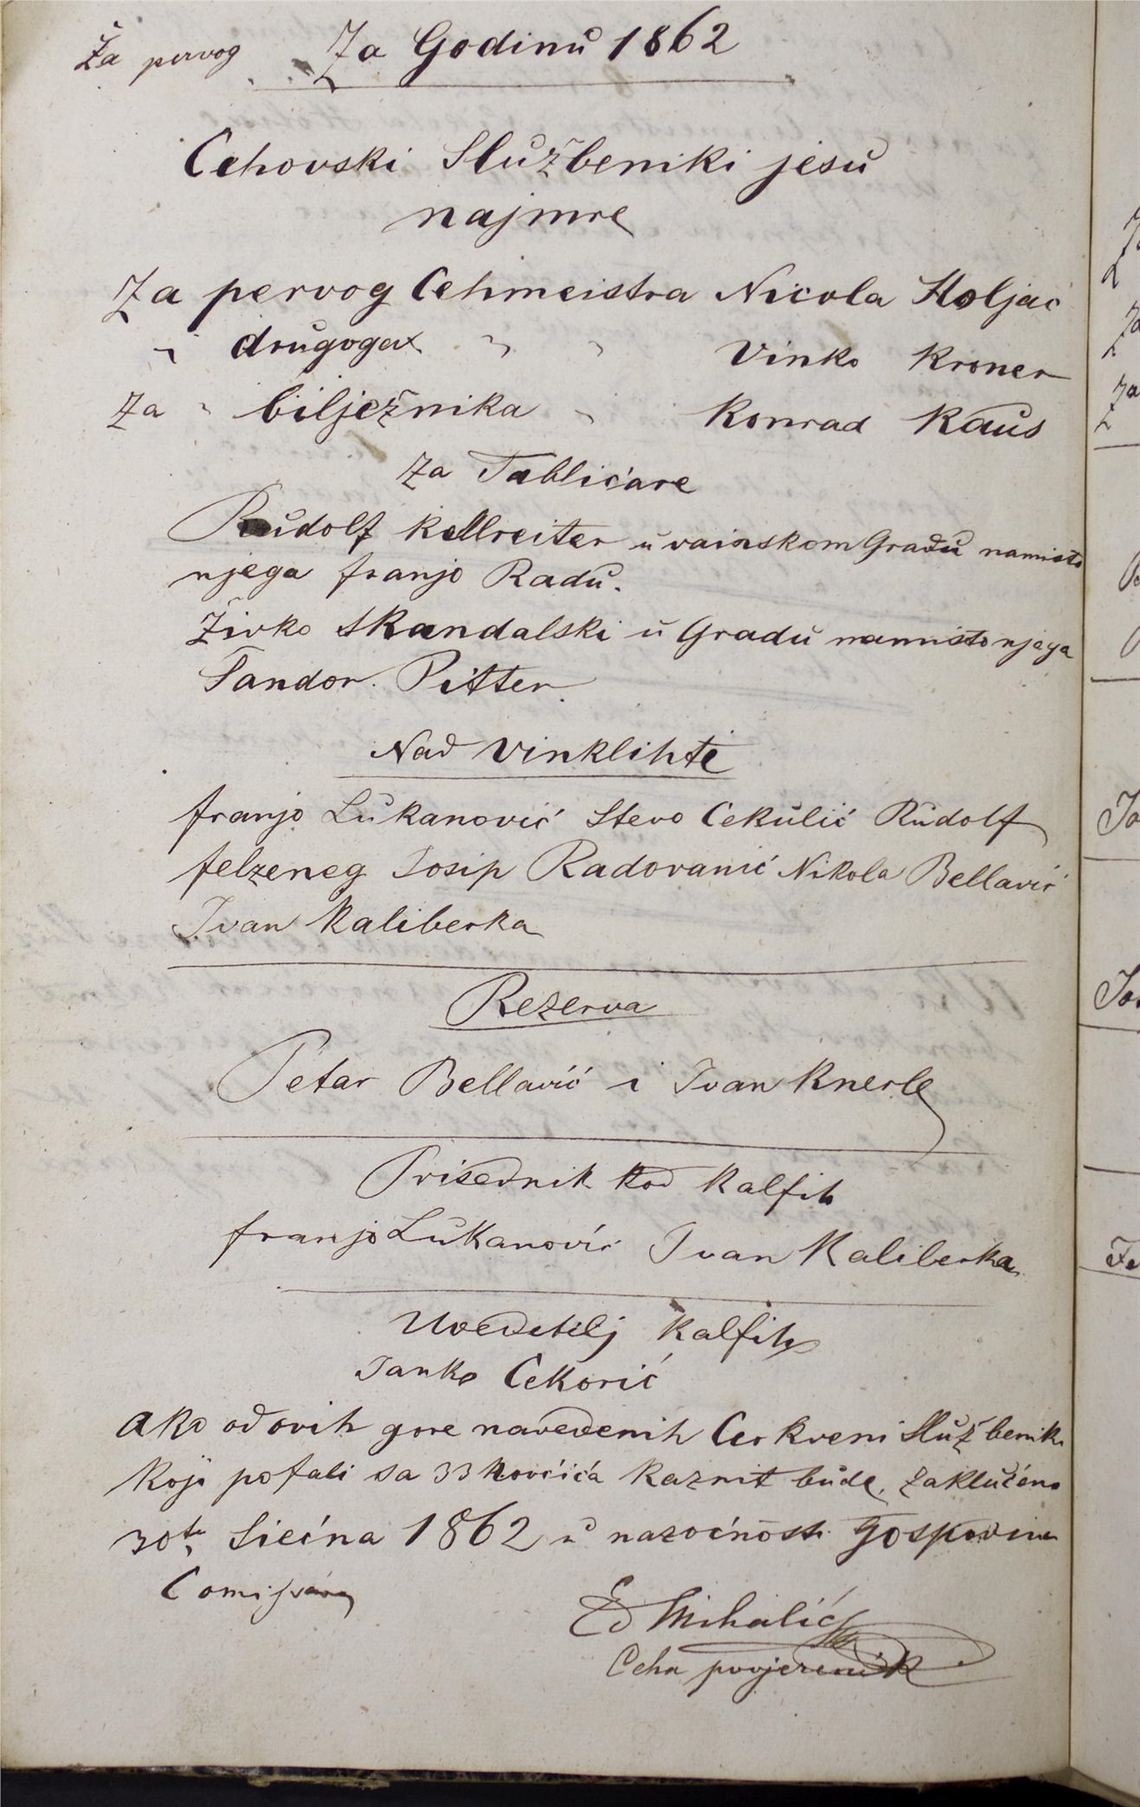 Za pervog Za Godinu 1862
Cehovski Službeniki jesu
najmre
Za pervog Cehmeistra Nicola Holjac
" drugoga " " Vinko Kroner
Za " bilježnika " Konrad Kaus
Za Tablićare
Rudolf Kellreiter u vainskom Gradu namisto
njega franjo Radu.
Živko Skandalski u Gradu namisto njega
Šandor Pitter
Nad Vinklihte
franjo Lukanović Stevo Cekulić Rudolf
felzeneg Josip Radovanić Nikola Bellavić
Ivan Kaliberka
Rezerva
Petar Bellavić i Ivan Knerle
Prisednik kod Kalfih
franjo Lukanović Ivan Kaliberka
Uveditelj Kalfih
Janko Cekorić
Ako od ovih gore navedenih Cerkveni Službenik
koji pofali sa 33 novčića kaznit bude, zaklućeno
30te Siećna 1862 u nazoćnosti Gospodina
Comissara
Ed Mihalić
Ceha povjerenik